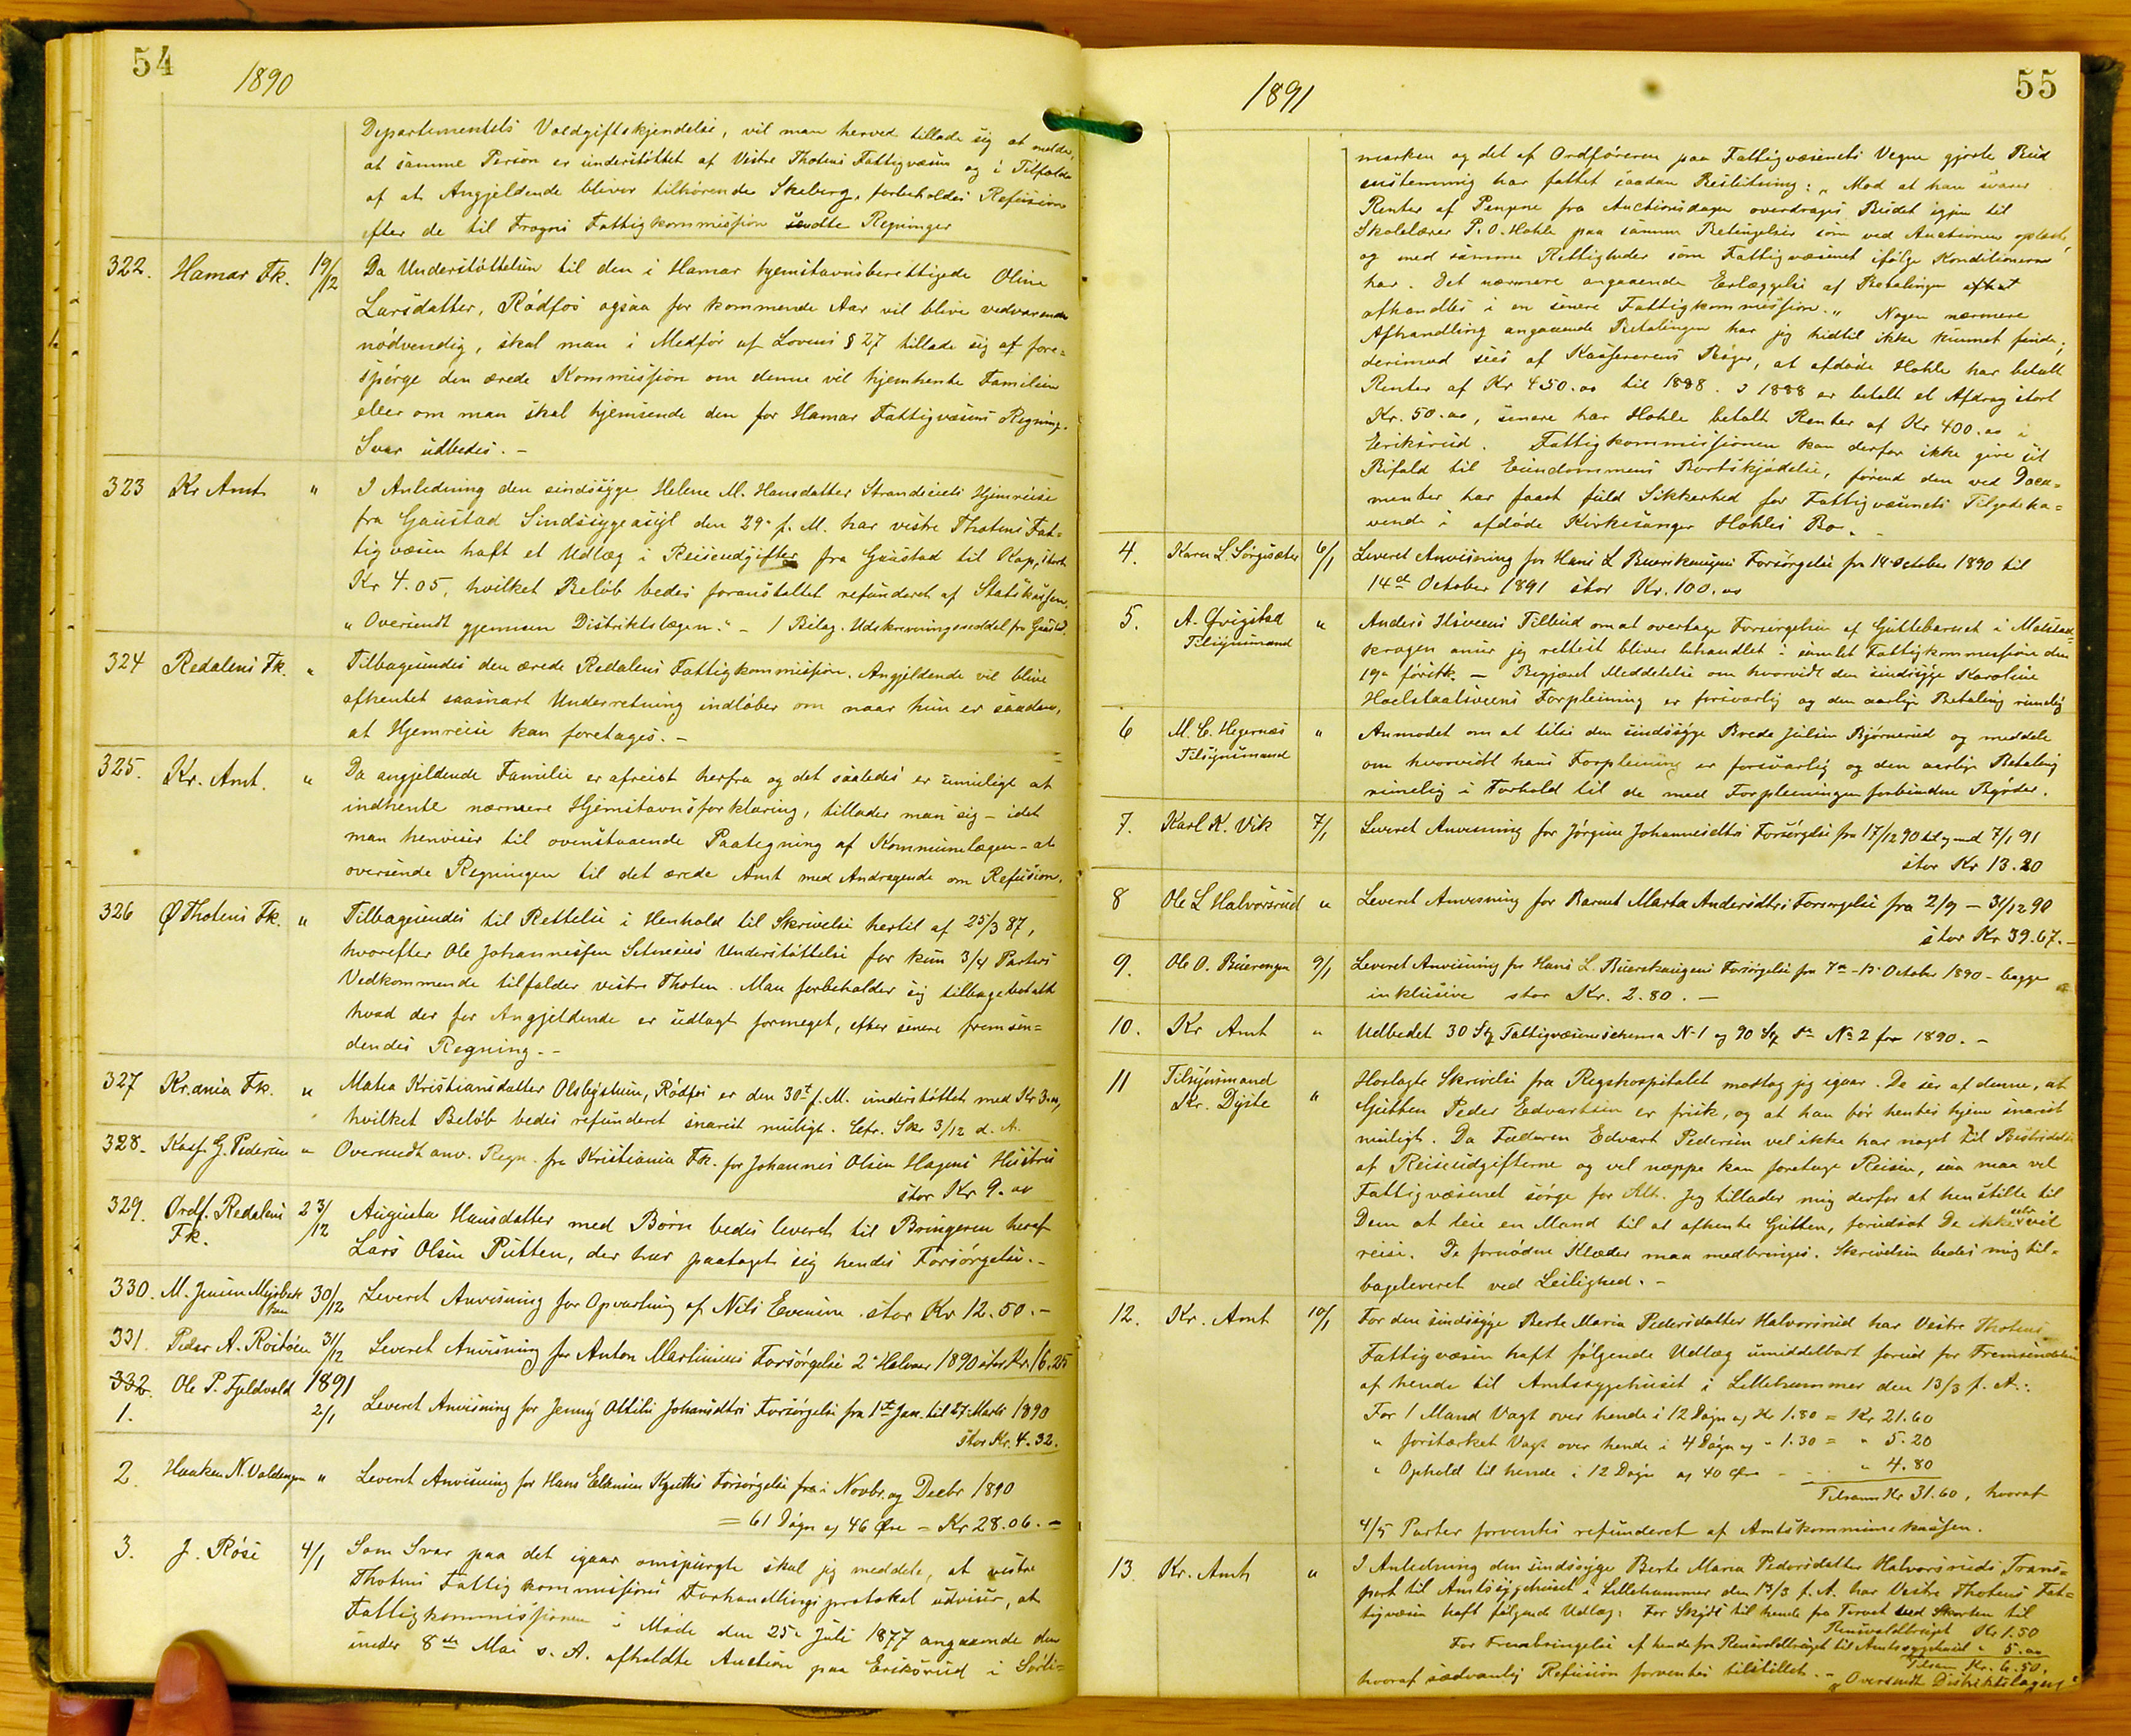 54
1890
Departementets Voldgiftskjendelse, vil man herved tillade sig at melde,
at samme Person er understøttet af Vestre Thotens Fattigvæsen og i Tilfælde
af at Angjeldende bliver tilhørende Skeberg, forbeholdes Refusion
efter de til Frogns Fattigkommission sendte Regninger
322. Hamar Fk. 19/12 Da Understøttelsen til den i Hamar hjemstavnsberettigede Oline
Larsdatter, Rødfos ogsaa for kommende Aar vil blive vedvarende
nødvendig, skal man i Medfør af Lovens § 27 tillade sig at fore=
spørge den ærede Kommission om denne vil hjemhente Familien
eller om man skal hjemsende den for Hamar Fattigvæsens Regning.
Svar udbedes. –
323 Kr Amt " I Anledning den sindssyge Helene M. Hansdatter Strandseiets Hjemreise
fra Gaustad Sindssygeasyl den 29. f. M. har vestre Thotens Fat=
tigvæsen haft et Udlæg i Reiseudgifter fra Gaustad til Kap, stort
Kr 4.05, hvilket Beløb bedes foranstaltet refunderet af Statskassen.
"Oversendt gjennem Distriktslægen." – 1 Bilag. Udskrivningsseddel fra Gaustad.
324 Redalens Fk. " Tilbagesendes den ærede Redalens Fattigkommission. Angjeldende vil blive
afhentet saasnart Underretning indløber om naar hun er saadan,
at Hjemreise kan foretages. –
325. Kr. Amt. " Da angjeldende Familie er afreist herfra og det saaledes er umuligt at
indhente nærmere Hjemstavnsforklaring, tillader man sig – idet
man henviser til ovenstaaende Paategning af Kommunelægen – at
oversende Regningen til det ærede Amt med Andragende om Refusion.
326 Ø Thotens Fk. " Tilbagesendes til Rettelse i Henhold til Skrivelse hertil af 25/3 87,
hvorefter Ole Johannessen Understøttelse for kun 3/4 Parters
Vedkommende tilfalder vestre Thoten. Man forbeholder sig tilbagebetalt
hvad der for Angjeldende er udlagt formeget, efter senere fremsen=
dendes Regning. –
327 Kr.ania Fk. " Mathea Kristiansdatter Olsbystuen, Rødfos er den 30t f. M. understøttet med Kr 3.00,
hvilket Beløb bedes refunderet snarest muligt. Cfr. Skr 3/12 d. A.
328. Kasf. G. Pedersen " Oversendt anv. Regn. fra Kristiania Fk. for Johannes Olsen Hagens Hustru
stor Kr 9.00
329. Ordf. Redalens 23/12 Augusta Hansdatter med Børn bedes leveret til Bringeren heraf
Fk. Lars Olsen Putten, der har paataget sig hendes Forsørgelse. –
330. M. Jensen 30/12 Leveret Anvisning for Opvartning af Nils Evensen stor Kr 12.50. –
331. Peder A. 31/12 Leveret Anvisning for Anton Martinsens Forsørgelse 2. Halvaar 1890 stor Kr. 16.25
332. Ole P. Fjeldvold 1891
1. 2/1 Leveret Anvisning for Jenny Ottilie Johansdtrs Forsørgelse fra 1st Jan. til 27 Marts 1890
stor Kr. 4.32.
2. Haaken N. Voldengen " Leveret Anvisning for Hans Forsørgelse fra i Novbr. og Decbr 1890
= 61 Døgn a 46 Øre = Kr 28.06. –
3. J. Røse 4/1 Som Svar paa det igaar omspurgte skal jeg meddele, at vestre
Thotens Fattigkommissions Forhandlingsprotokol udviser, at
Fattigkommissionen i Møde den 25. Juli 1877 angaaende den
under 8de Mai s. A. afholdte Auction paa Eriksrud i
55
1891
marken og det af Ordføreren paa Fattigvæsenets Vegne gjorte Bud
enstemmig har fattet saadan Beslutning: "Mod at han svarer
Renter af Pengene fra Auctionsdagen overdrages Budet igjen til
Skolelærer P. O. Hohle paa samme Betingelser som ved Auctionen oplæst,
og med samme Rettigheder som Fattigvæsenet ifølge Konditionerne
har. Det nærmere angaaende Erlæggelse af Betalingen
afhandles i en senere Fattigkommission." Nogen nærmere
Afhandling angaaende Betalingen har jeg hidtil ikke kunnet finde;
derimod sees af Kassererens Bøger, at afdøde Hohle har betalt
Renter af Kr 450.00 til 1888. I 1888 er betalt et Afdrag stort
Kr. 50.00, senere har Hohle betalt Renter af Kr 400.00 i
Eriksrud. Fattigkommissionen kan derfor ikke give sit
Bifald til Eiendommens Bortskjødelse, førend den ved Docu=
menter har faaet fuld Sikkerhed for Fattigvæsenets Tilgodeha=
vende i afdøde Kirkesanger Hohles Bo. –
4. Karen L. Sørgisæter 6/1 Leveret Anvisning for Hans L Buerskaugens Forsørgelse fra 14 October 1890 til
14de October 1891 stor Kr. 100.00
5. A. Qvigstad " Anders Tilbud om at overtage Forsørgelsen af Guttebarnet i
Tilsynsmand kragen anser jeg rettest bliver behandlet i samlet Fattigkommission den
19. førstk. – Begjæret Meddelelse om hvorvidt den sindssyge Karoline
Forpleining er forsvarlig og den aarlige Betaling rimelig
6 M. C. Hegernæs " Anmodet om at tilse den sindssyge Brede Julsen Bjørnerud og meddele
Tilsynsmand om hvorvidt hans Forpleining er forsvarlig og den aarlige Betaling
rimelig i Forhold til de med Forpleiningen forbundne Byrder.
7. Karl K. Vik 7/1 Leveret Anvisning for Jørgine Johannesdtrs Forsørgelse fra 17/12 90 til og med 7/1 91
stor Kr 13.20
8 Ole L Halvorsrud " Leveret Anvisning for Barnet Marta Andersdtrs Forsørgelse fra 2/9 – 31/12 90
stor Kr 39.67. –
9. Ole O. Buerengen 9/1 Leveret Anvisning for Hans L. Buerskaugens Forsørgelse fra 7de – 13. October 1890 – begge
inklusive stor Kr. 2.80. –
10. Kr Amt " Udbedet 30 Stk Fattigvæsensschema No 1 og 90 Stk do No 2 for 1890. –
11 Tilsynsmand " Hoslagte Skrivelse fra Rigshospitalet modtog jeg igaar. De ser af denne, at
Kr. Dyste Gutten Peder Edvardsen er frisk, og at han bør hentes hjem snarest
muligt. Da Faderen Edvart Pedersen vel ikke har noget til Bestridelse
af Reiseudgifterne og vel neppe kan foretage Reisen, saa maa vel
Fattigvæsenet sørge for Alt. Jeg tillader mig derfor at henstille til
Dem at leie en Mand til at afhente Gutten, forudsat De ikke selv vil
reise. De fornødne Klæder maa medbringes. Skrivelsen bedes mig til=
bageleveret ved Leilighed. –
12. Kr. Amt 10/1 For den sindssyge Berte Maria Pedersdatter Halvorsrud har Vestre Thotens
Fattigvæsen haft følgende Udlæg umiddelbart forud for Fremsendelsen
af hende til Amtssygehuset i Lillehammer den 13/3 f. A.:
For 1 Mand Vagt over hende i 12 Døgn a Kr 1.80 = Kr 21.60
" forstærket Vagt over hende i 4 Døgn a " 1.30 = " 5.20
" Ophold til hende i 12 Døgn a 40 Øre – " 4.80
Tilsam. Kr 31.60, hvoraf
4/5 Parter forventes refunderet af Amtskommunekassen.
13 Kr. Amt " I Anledning den sindssyge Berte Maria Pedersdatter Halvorsruds Trans=
port til Amtssygehuset i Lillehammer den 13/3 f. A. har Vestre Thotens Fat=
tigvæsen haft følgende Udlæg: For Skyds til hende fra til
Kr 1.50
For Frembringelse af hende fra til Amtssygehuset " 5.00
Tilsam. Kr. 6.50,
hvoraf sædvanlig Refusion forventes tilstillet. – "Oversendt Distriktslægen"